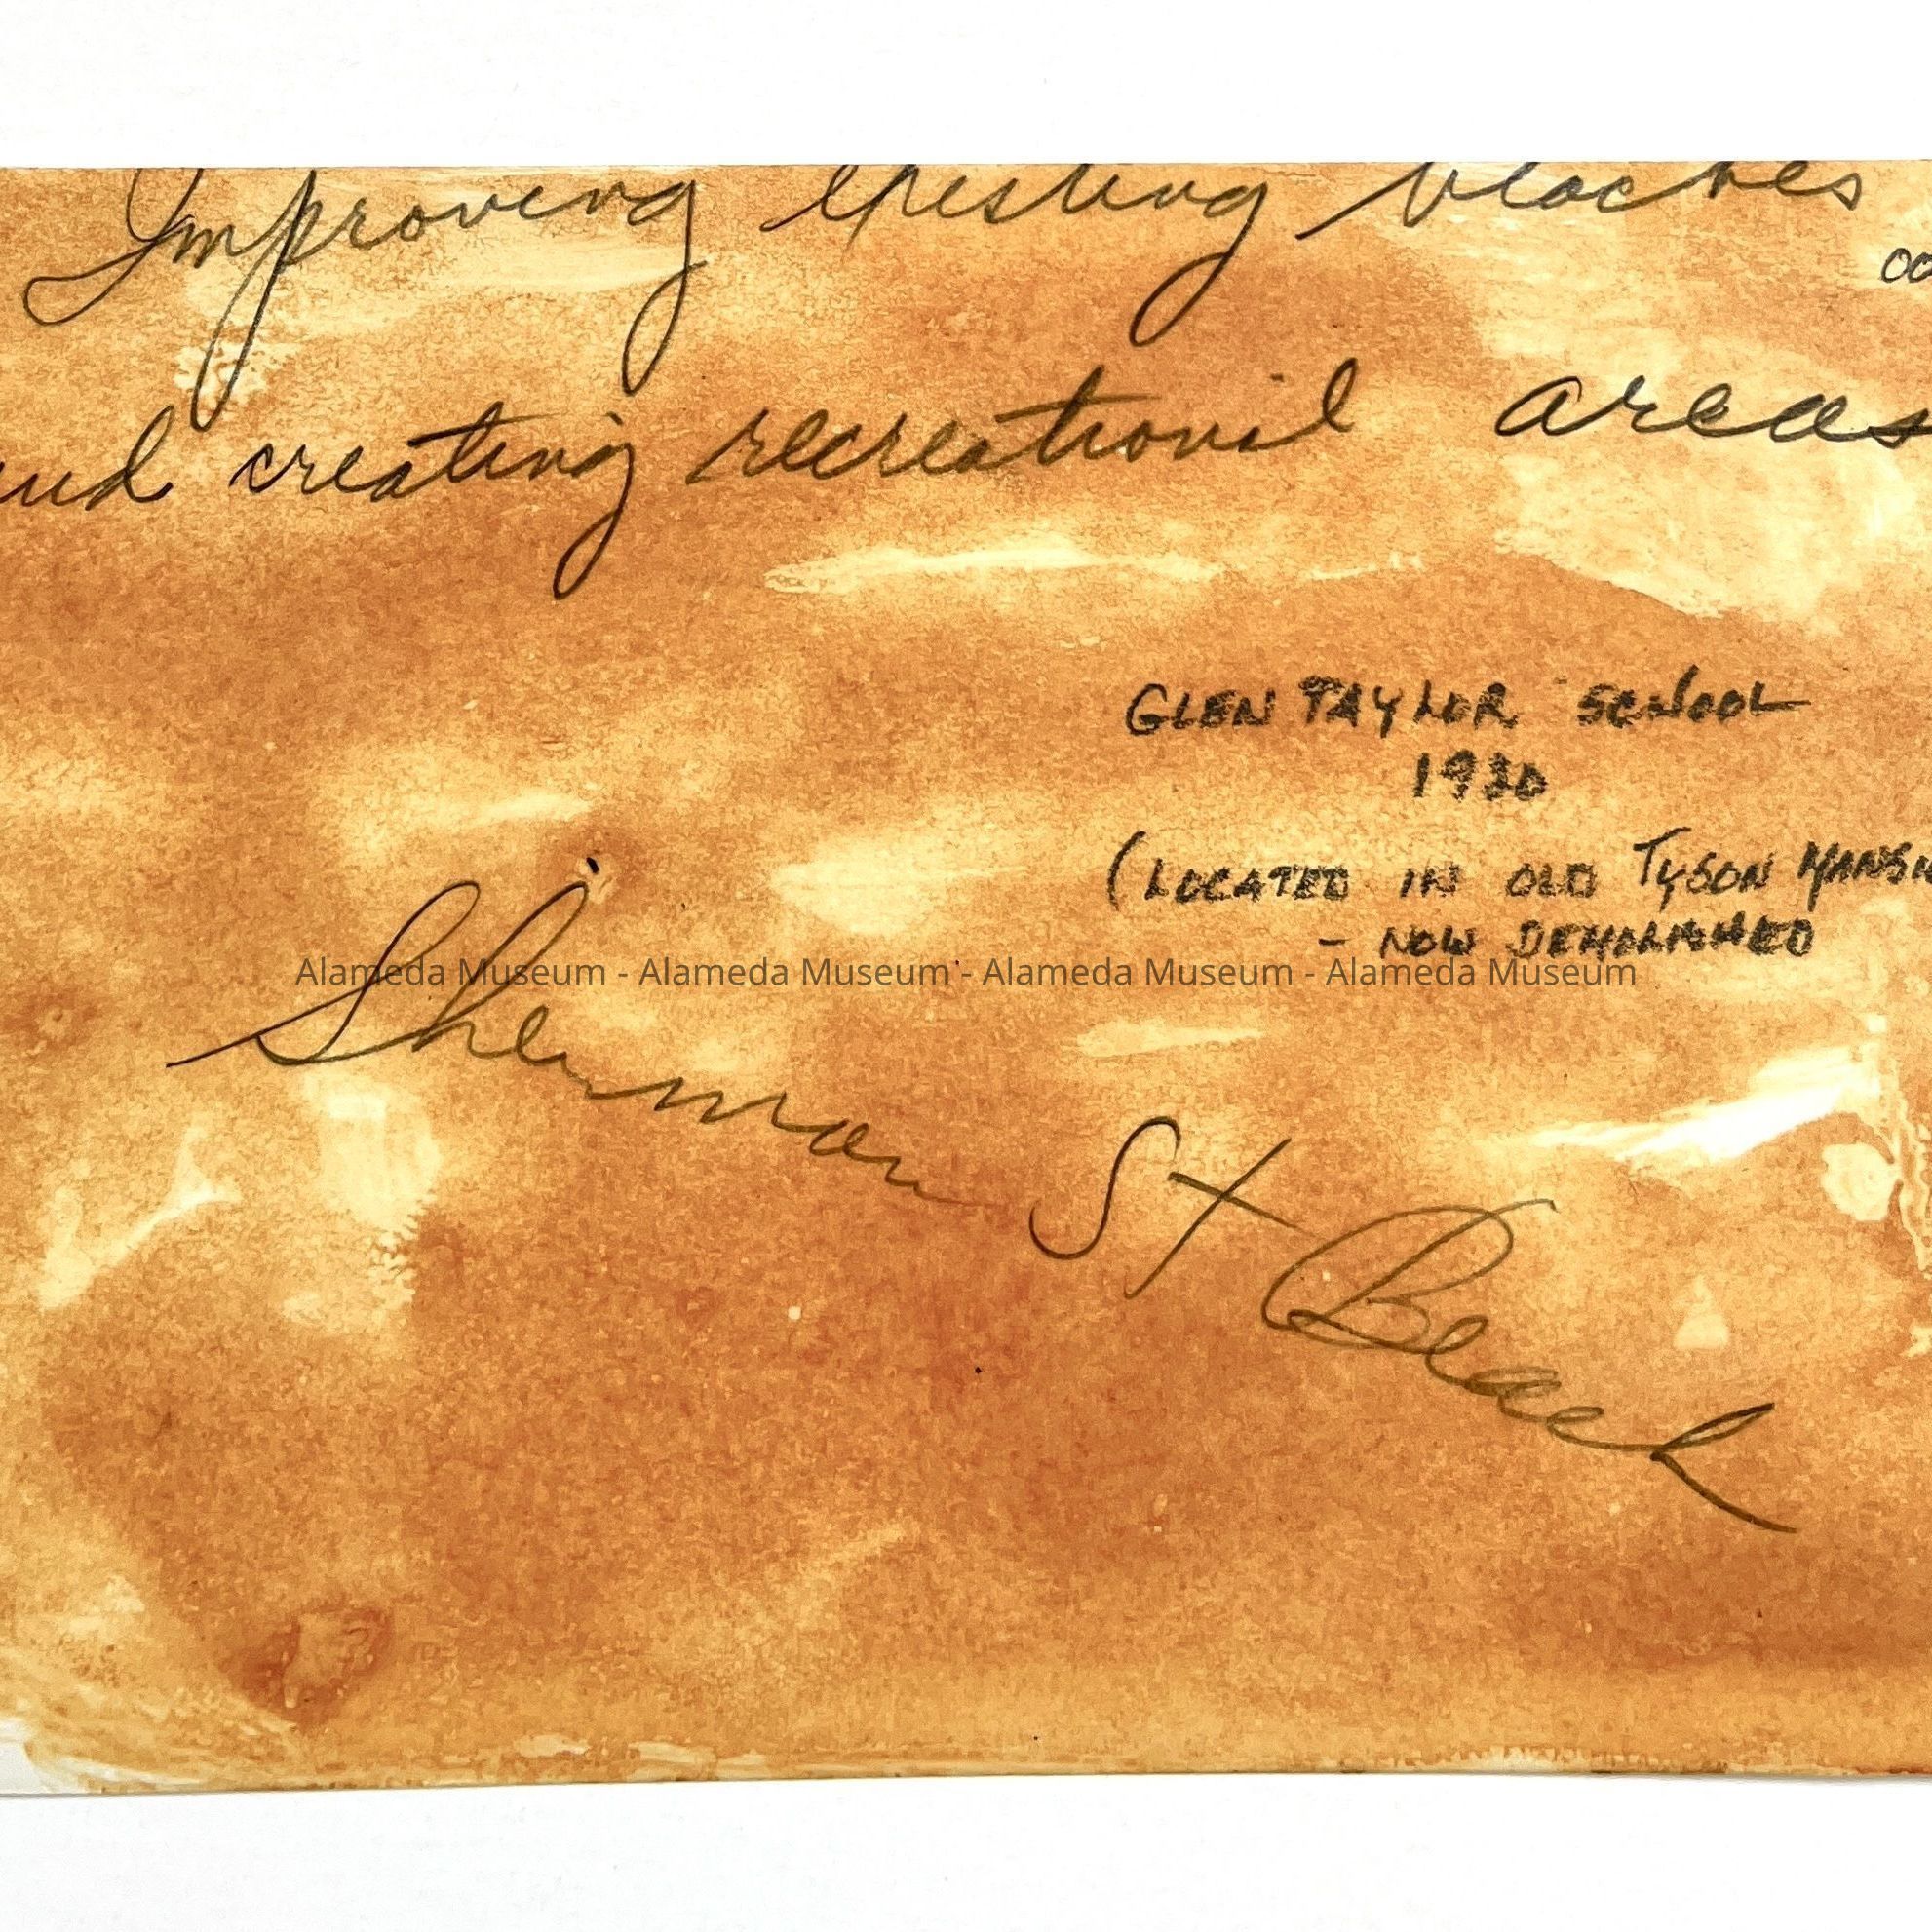 Improving existing beaches
and creating recreational areas
GLEN TAYLOR SCHOOL
1930
(LOCATED IN OLD TYSON MANSI
- NOW DEMOLISHED
Alameda Museum - Alameda Museum - Alameda Museum - Alameda Museum
Sherman St Beach